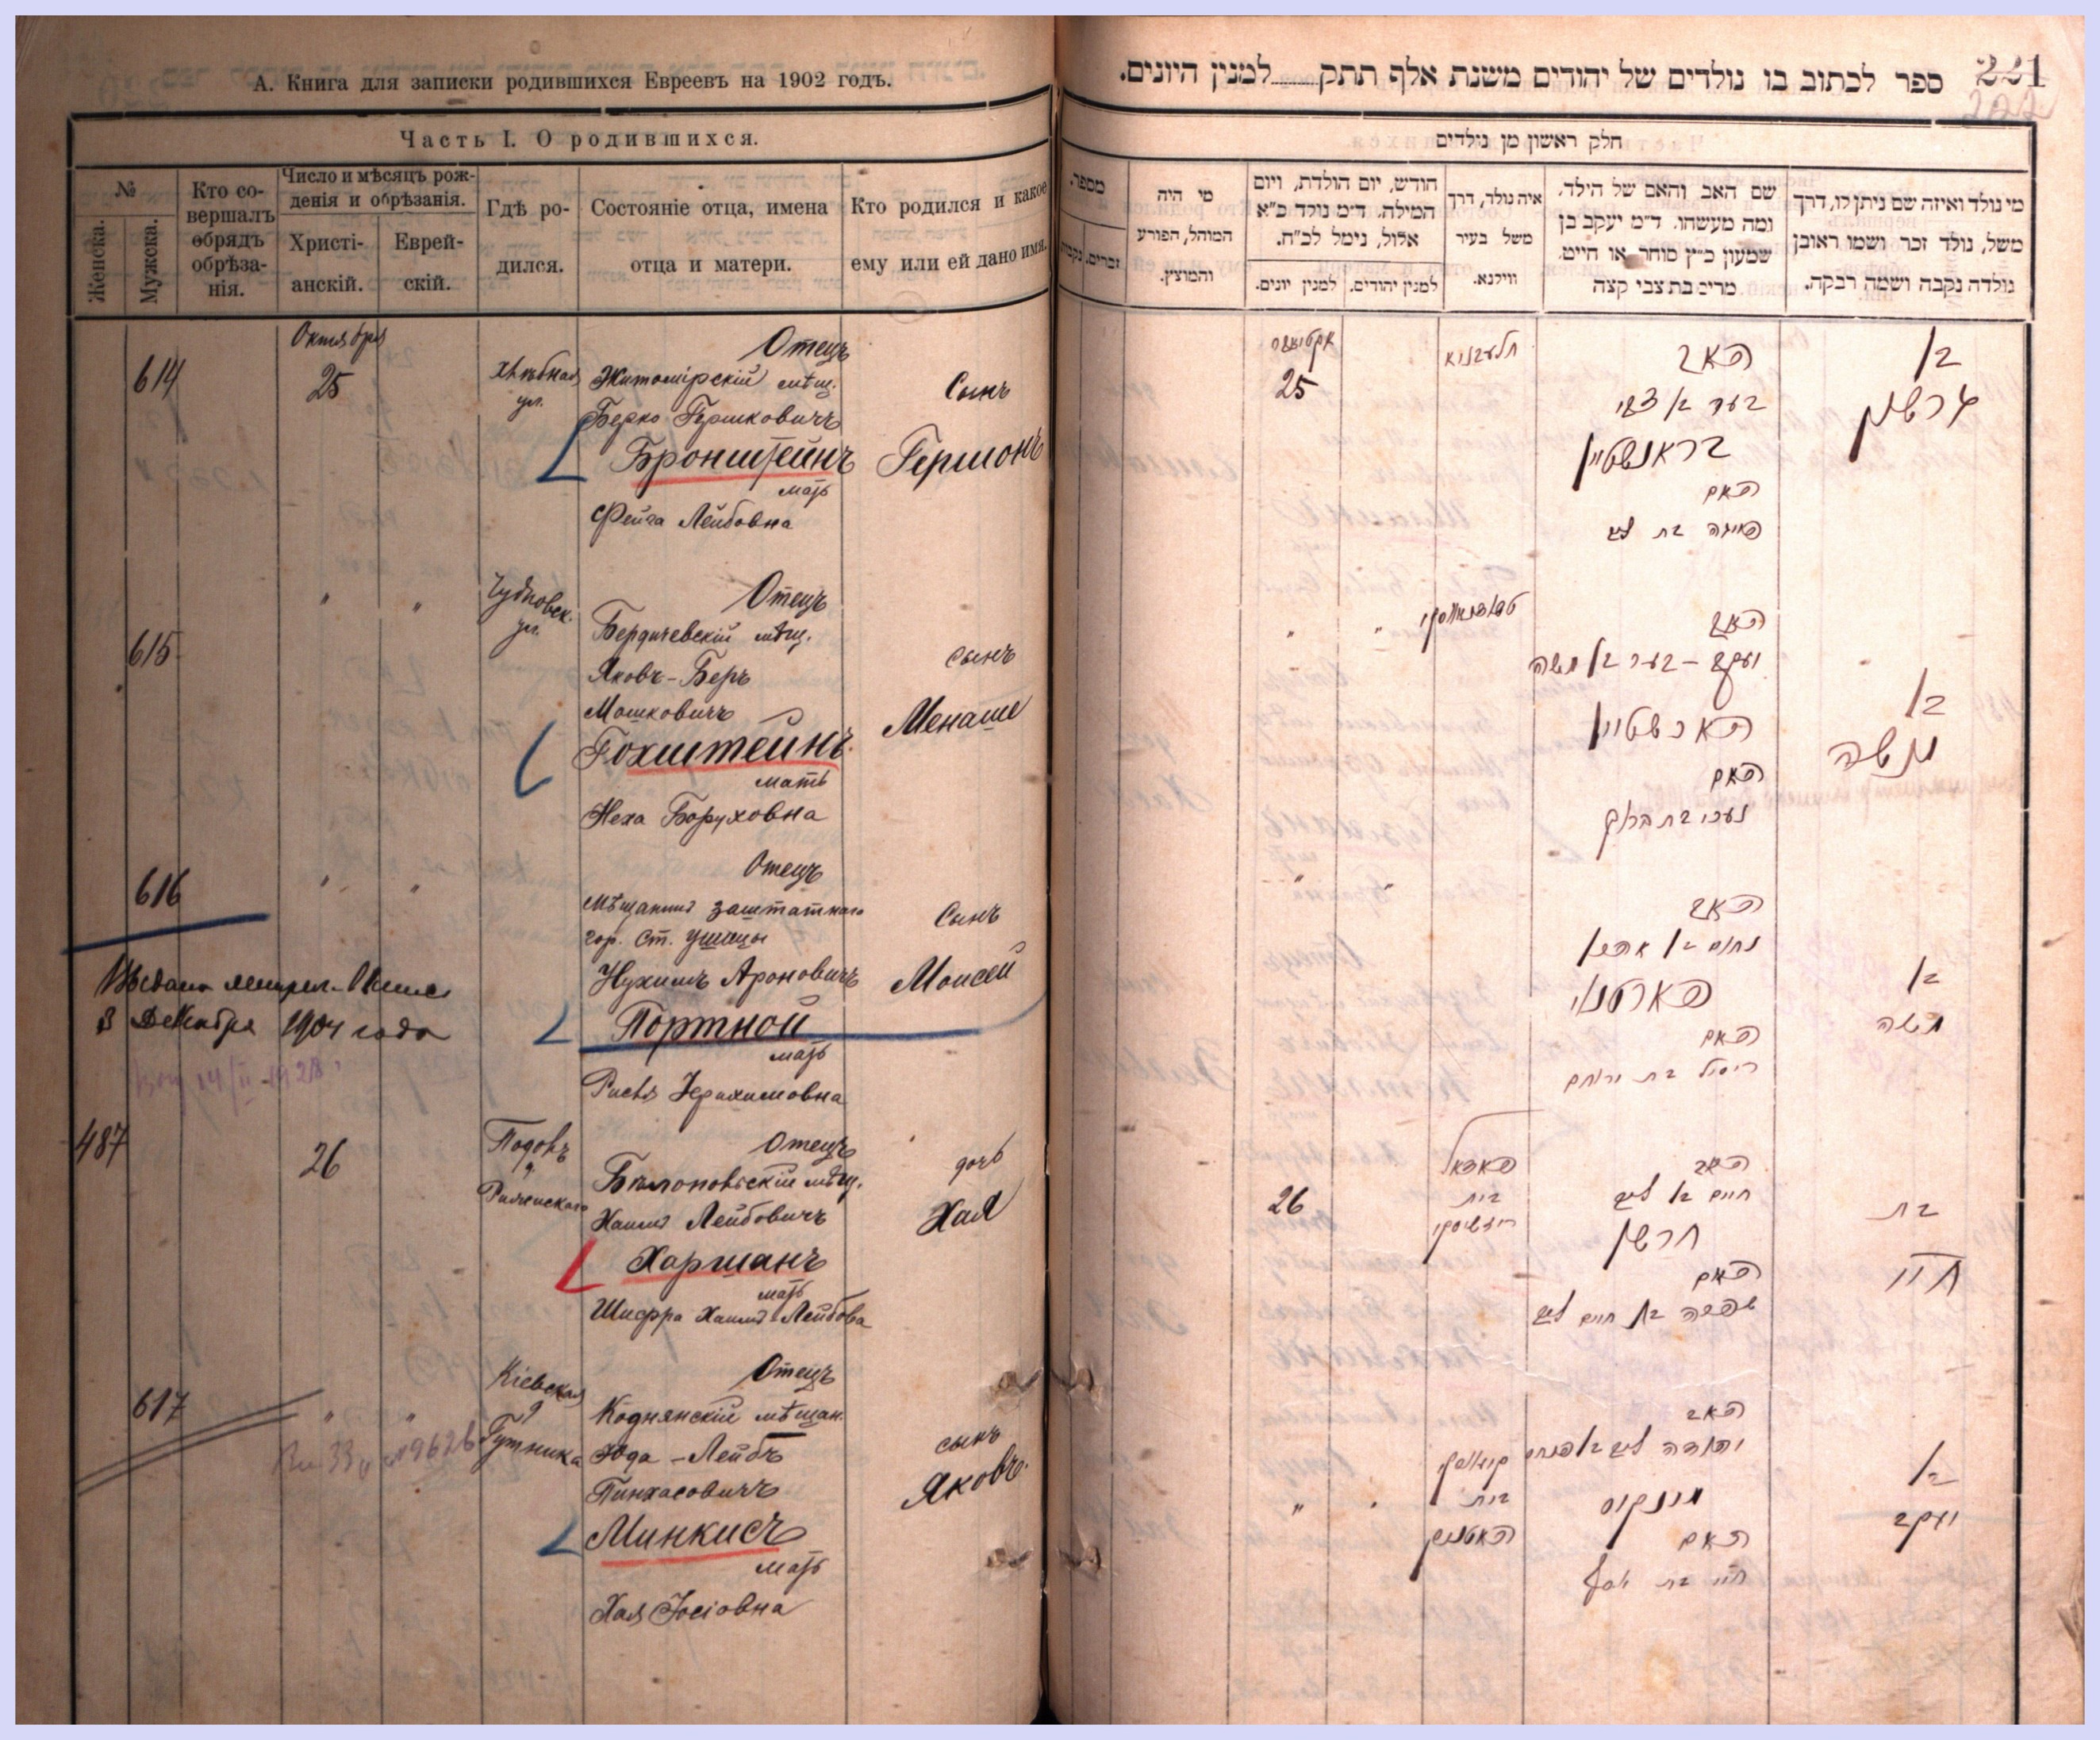 А. Книга для записки родившихся Евреевъ на 1902 годъ.
Часть I. О родившихся.
№
Женска.
Мужска.
Кто со-
вершалъ
обрядъ
обрѣза-
нія.
Число и мѣсяцъ рож-
денія и обрѣзанія.
Христі-
анскій.
Еврей-
скій.
Гдѣ ро-
дился.
Состояніе отца, имена
отца и матери.
Кто родился и какое
ему или ей дано имя.
614
Октября
25
Хлѣбная
ул.
Отецъ
Житомірскій мѣщ.
Берко Гершковичъ
Бронштейнъ
мать
Фейга Лейбовна
Сынъ
Гершонъ
615
" "
Чудновск.
ул.
Отецъ
Бердичевскій мѣщ.
Яковъ-Беръ
Мошковичъ
Гохштейнъ
мать
Неха Боруховна
сынъ
Менаше
616
" "
Отецъ
Мѣщанинъ заштатнаго
гор. Ст. Ушицы
Нухимъ Ароновичъ
Портной
мать
Рися Іерахимовна
Сынъ
Моисей
Выдана
3 Декабря 1904 года
487
26
Подовъ
д.
Отецъ
Бѣлопольскій мѣщ.
Хаимъ Лейбовичъ
Харшанъ
мать
Шифра Хаимъ Лейбова
дочь
Хая
617
" "
Кіевская
д.
Гутника
Отецъ
Коднянскій мѣщан.
Юда-Лейбъ
Пинхасовичъ
Минкисъ
мать
Хая Іосіовна
сынъ
Яковъ
ספר לכתוב בו נולדים של יהודים משנת אלף תתק למנין היונים.
221
חלק ראשון מן נולדים
מספר.
זכרים. נקבות
מי היה
המוהל, הפורע
והמוצץ.
חודש, יום הולדת, ויום
המילה. ד״מ נולד כ״א
אלול, נימל לכ״ח.
למנין יונים.
למנין יהודים.
איה נולד, דרך
משל בעיר
ווילנא.
שם האב והאם של הילד.
ומה מעשהו. ד״מ יעקב בן
שמעון כ״ץ סוחר או חייט.
מרים בת צבי קצה
מי נולד ואיזה שם ניתן לו, דרך
משל, נולד זכר ושמו ראובן
נולדה נקבה ושמה רבקה.
25
האב
בער בן צבי
בראנשטיין
האם
פייגה בת ליב
בן
גרשון
" "
האב
יעקב-בער בן משה
האכשטיין
האם
נעכי בת ברוך
בן
מנשה
" "
האב
נחום בן אהרן
פארטנוי
האם
בן
משה
26
בית
האב
חיים בן ליב
חרשן
האם
שפרה בת חיים ליב
בת
חיי
"
בית
האב
יהודה ליב בן פנחס
מינקיס
האם
חיי בת יוסף
בן
יעקב